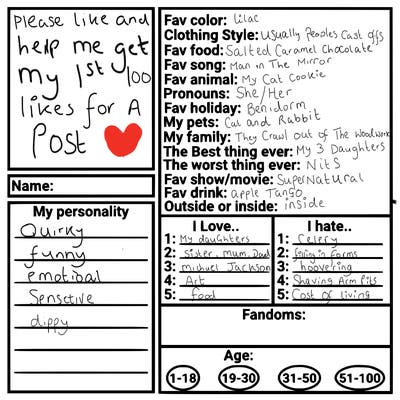 Please like and
help me get
my 1st 100
likes for A
Post
Name:
My personality
Quirky
funny
emotional
Sensitive
dippy
Fav color: lilac
Clothing Style: usually Peoples Cast offs
Fav food: Salted Caramel Chocolate
Fav song: Man in The Mirror
Fav animal: My Cat Cookie
Pronouns: She/Her
Fav holiday: Benidorm
My pets: Cat and Rabbit
My family: They Crawl out of The Woodwork
The Best thing ever: My 3 Daughters
The worst thing ever: Nits
Fav show/movie: SuperNatural
Fav drink: apple Tango
Outside or inside: inside
I Love..
1: My daughters
2: Sister, mum, Dad
3: michael Jackson
4: Art
5: food
I hate..
1: Celery
2: filling in forms
3: hoovering
4: Shaving Arm Pits
5: Cost of living
Fandoms:
Age:
1-18 19-30 31-50 51-100